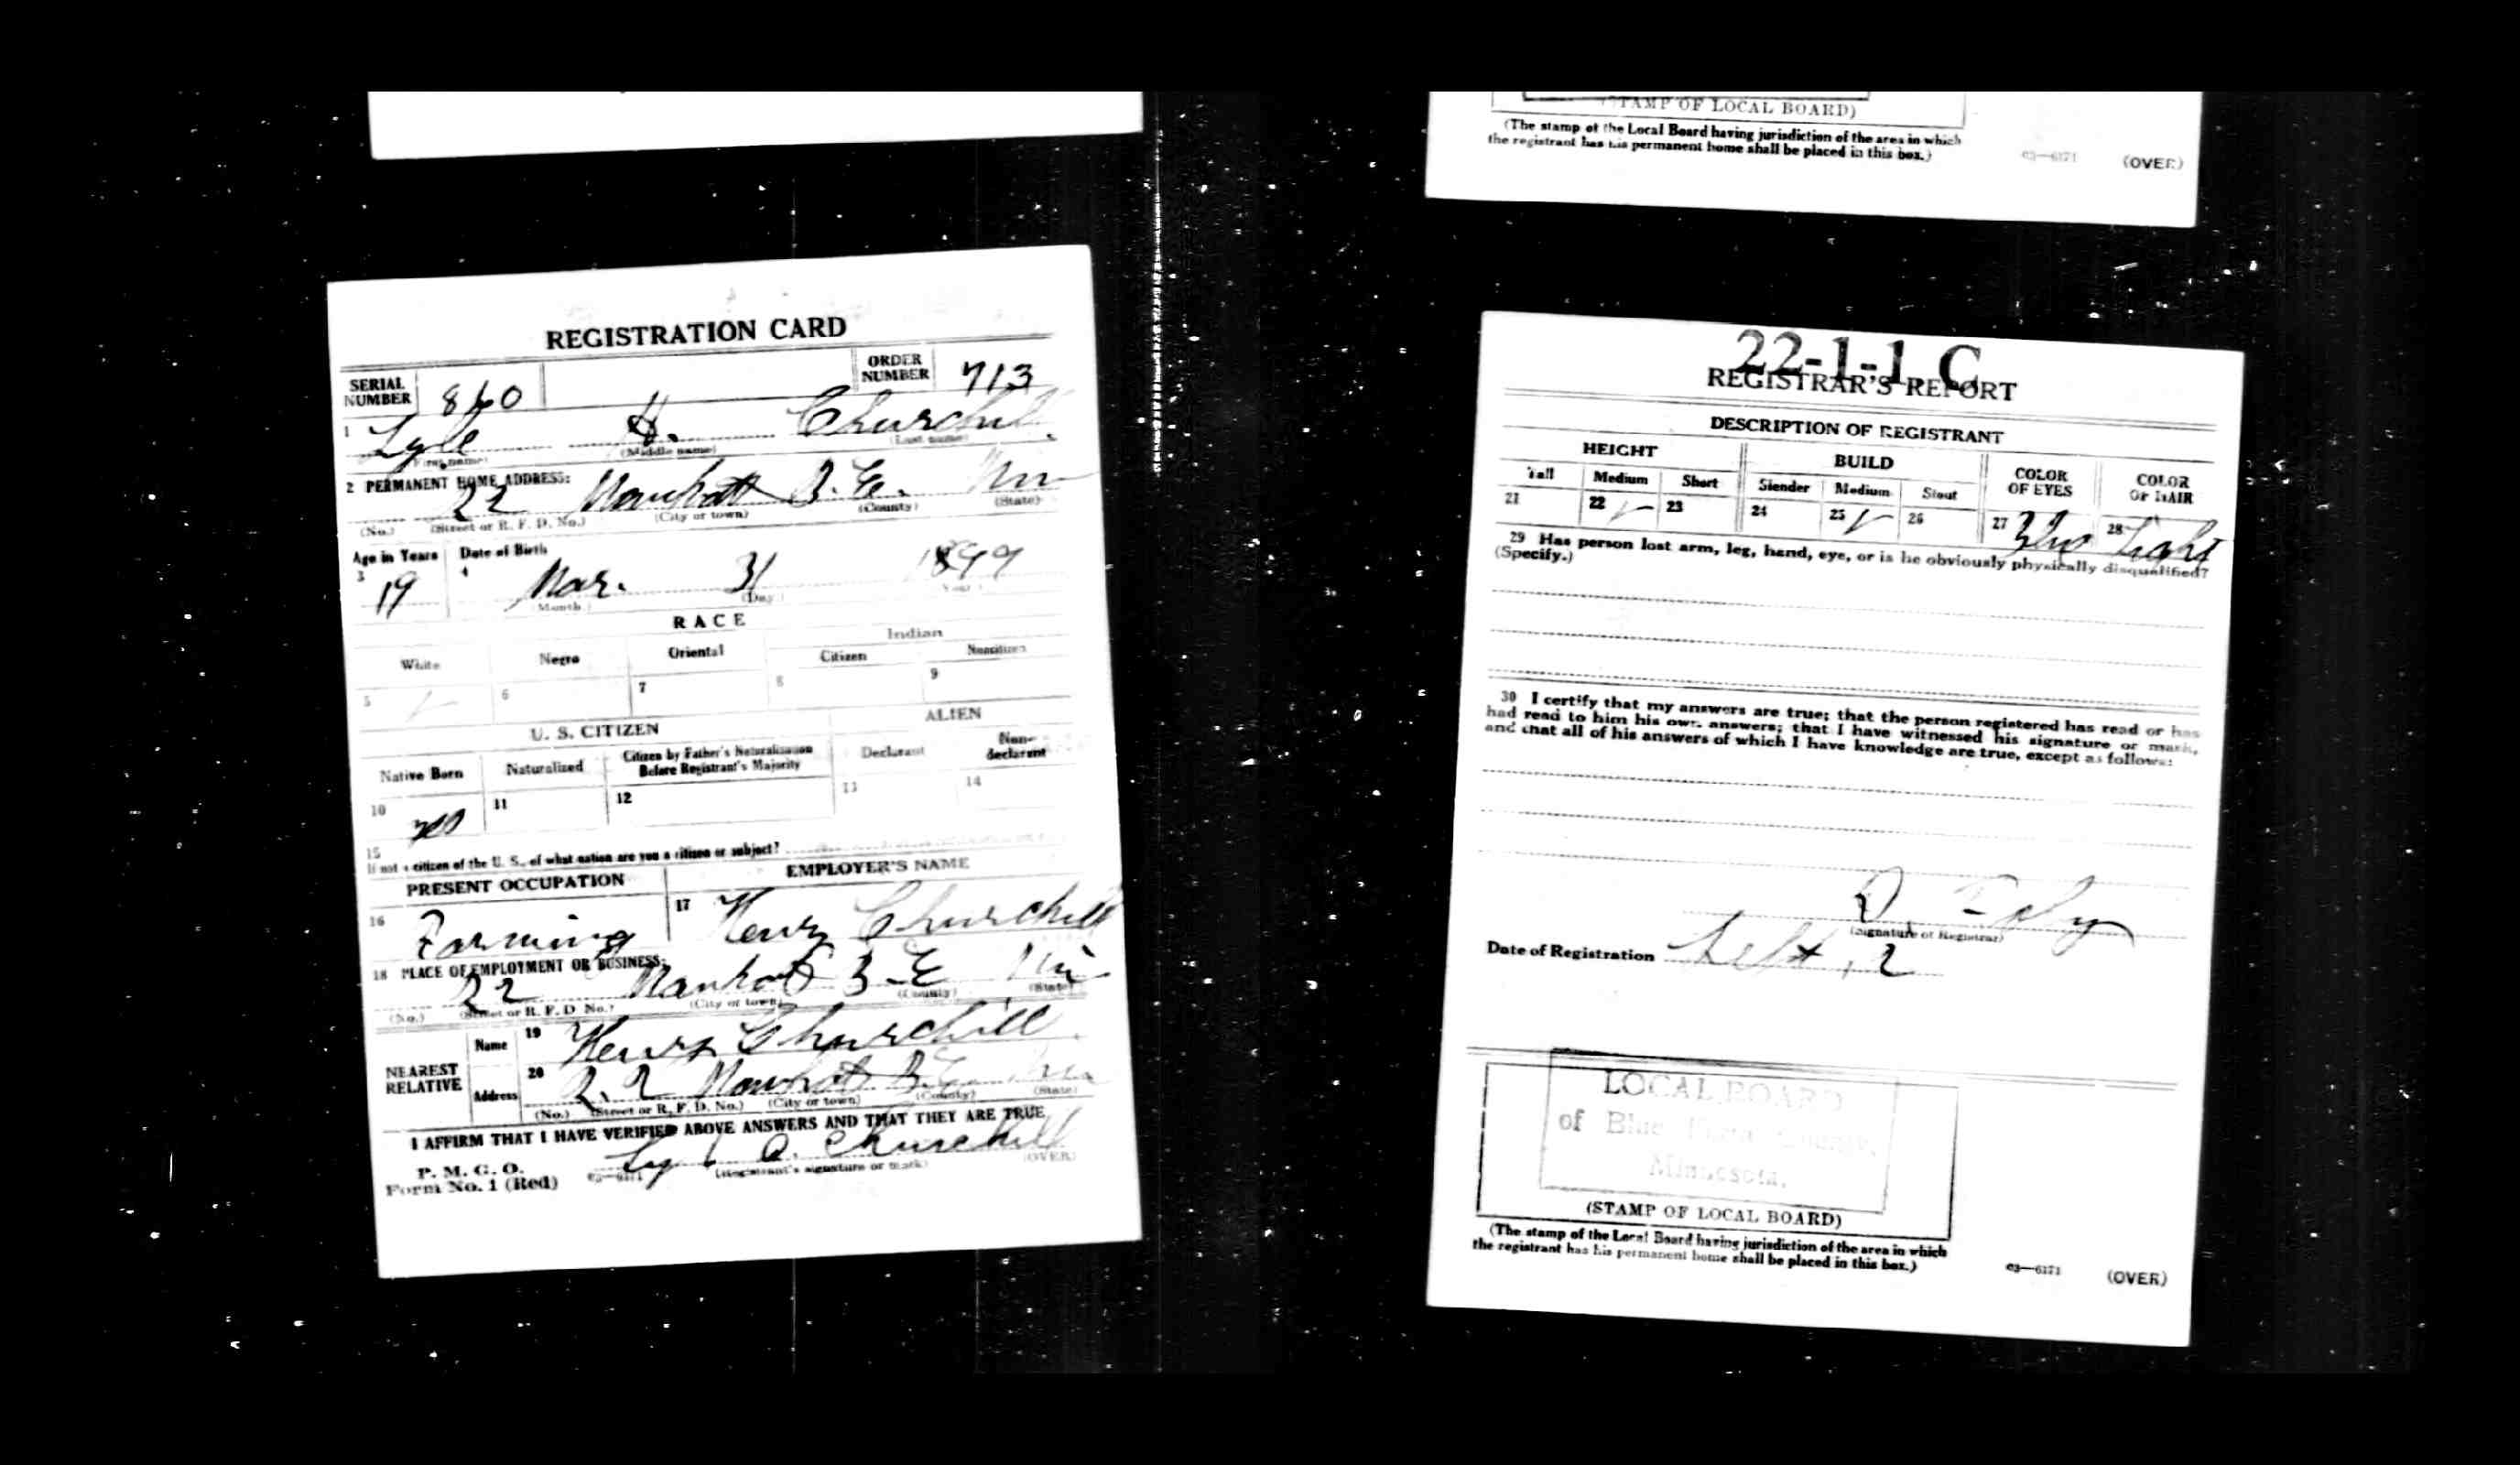 (STAMP OF LOCAL BOARD)
(The stamp of the Local Board having jurisdiction of the area in which
the registrant has his permanent home shall be placed in this box.)
03—6171 (OVER)
REGISTRATION CARD
SERIAL NUMBER 860 ORDER NUMBER 713
1 Lyle H. Churchill
(First name) (Middle name) (Last name)
2 PERMANENT HOME ADDRESS:
22 B.E.
(No.) (Street or R. F. D. No.) (City or town) (County) (State)
Age in Years Date of Birth
3 19 4 Mar. 31 1899
(Month) (Day) (Year)
RACE
White Negro Oriental Indian
Citizen Noncitizen
5 6 7 8 9
U. S. CITIZEN ALIEN
Native Born Naturalized Citizen by Father's Naturalization Before Registrant's Majority Declarant Non-declarant
10 yes 11 12 13 14
15
If not a citizen of the U. S., of what nation are you a citizen or subject?
PRESENT OCCUPATION EMPLOYER'S NAME
16 Farming 17 Henry Churchill
18 PLACE OF EMPLOYMENT OR BUSINESS:
22 B.E.
(No.) (Street or R. F. D. No.) (City or town) (County) (State)
NEAREST RELATIVE Name 19 Henry Churchill
Address 20 B.E.
(No.) (Street or R. F. D. No.) (City or town) (County) (State)
I AFFIRM THAT I HAVE VERIFIED ABOVE ANSWERS AND THAT THEY ARE TRUE
Churchill
P. M. G. O.
Form No. 1 (Red) 03—6171 (Registrant's signature or mark) (OVER)
22-1-1 C
REGISTRAR'S REPORT
DESCRIPTION OF REGISTRANT
HEIGHT BUILD COLOR OF EYES COLOR OF HAIR
Tall Medium Short Slender Medium Stout
21 22 23 24 25 26 27 Blue 28 Light
29 Has person lost arm, leg, hand, eye, or is he obviously physically disqualified?
(Specify.)
30 I certify that my answers are true; that the person registered has read or has
had read to him his own answers; that I have witnessed his signature or mark,
and that all of his answers of which I have knowledge are true, except as follows:
(Signature of Registrar)
Date of Registration Sept, 2
LOCAL BOARD
of Blue Earth County,
Minnesota.
(STAMP OF LOCAL BOARD)
(The stamp of the Local Board having jurisdiction of the area in which
the registrant has his permanent home shall be placed in this box.)
03—6171 (OVER)